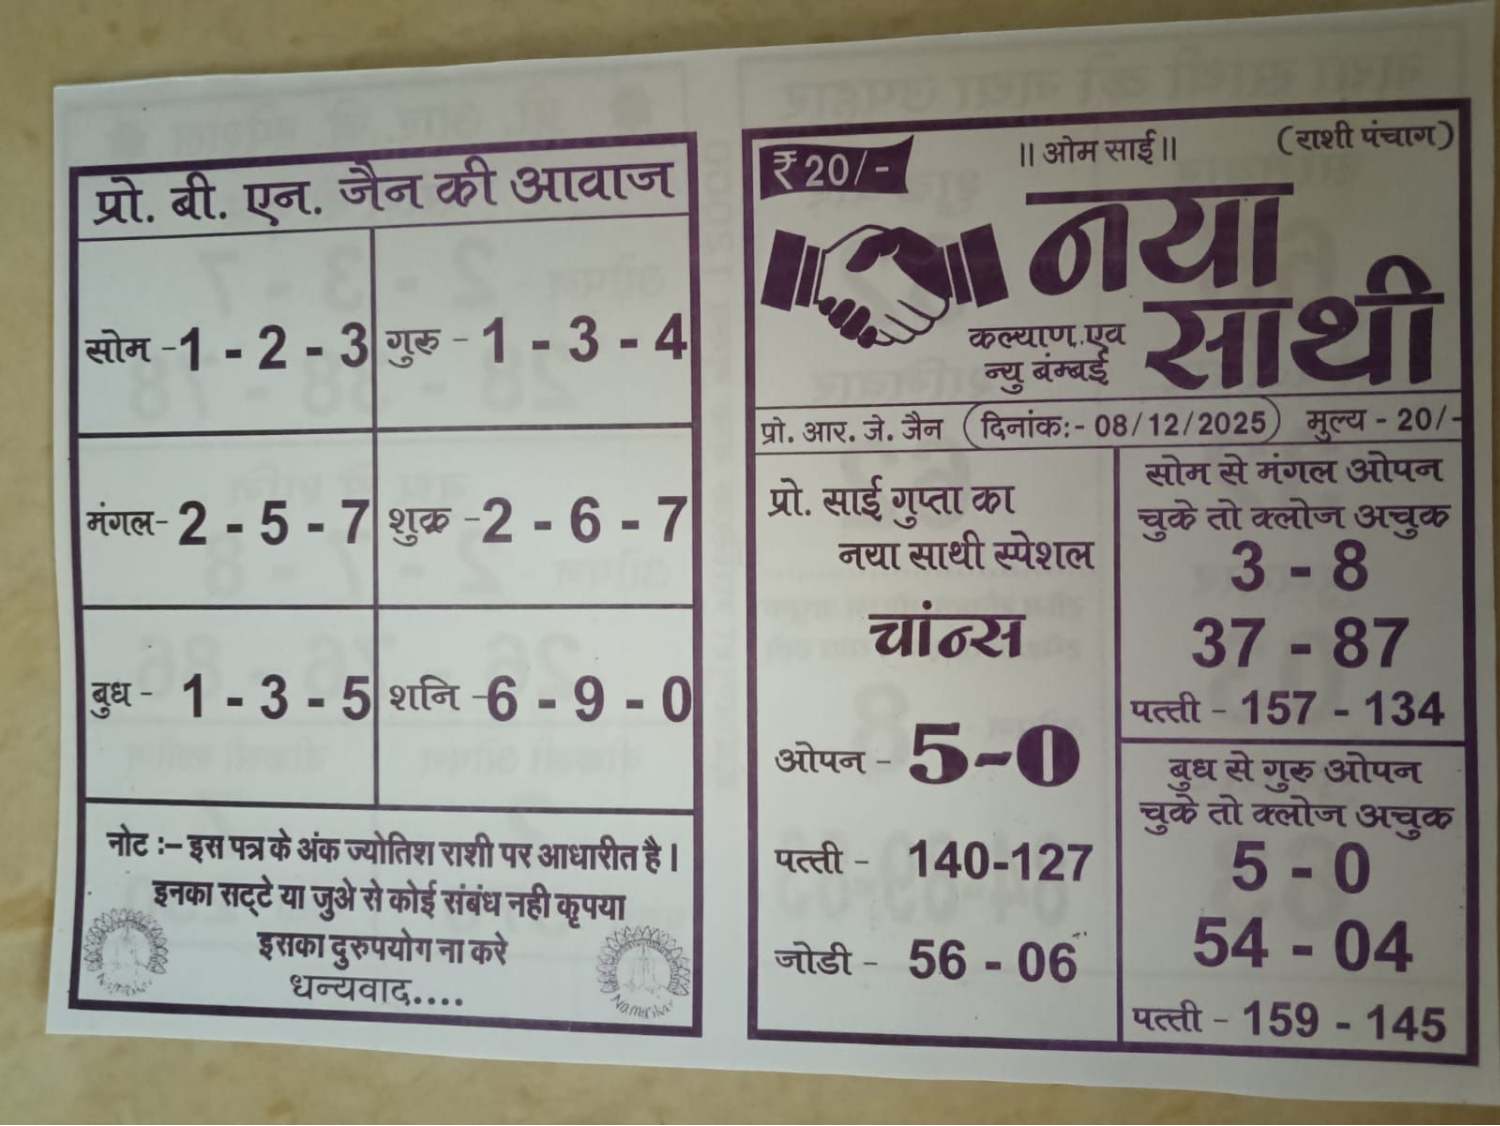 प्रो. बी. एन. जैन की आवाज
सोम - 1 - 2 - 3
गुरु - 1 - 3 - 4
मंगल- 2 - 5 - 7
शुक्र - 2 - 6 - 7
बुध - 1 - 3 - 5
शनि - 6 - 9 - 0
नोट :– इस पत्र के अंक ज्योतिश राशी पर आधारीत है ।
इनका सट्टे या जुअे से कोई संबंध नही कृपया
इसका दुरुपयोग ना करे
धन्यवाद....
₹ 20/-
॥ ओम साई॥
(राशी पंचाग)
नया
साथी
कल्याण.एव
न्यु बंम्बई
प्रो. आर. जे. जैन (दिनांक:- 08/12/2025) मुल्य - 20/-
प्रो. साई गुप्ता का
नया साथी स्पेशल
चांन्स
ओपन - 5-0
पत्ती - 140-127
जोडी - 56 - 06
सोम से मंगल ओपन
चुके तो क्लोज अचुक
3 - 8
37 - 87
पत्ती - 157 - 134
बुध से गुरु ओपन
चुके तो क्लोज अचुक
5 - 0
54 - 04
पत्ती - 159 - 145